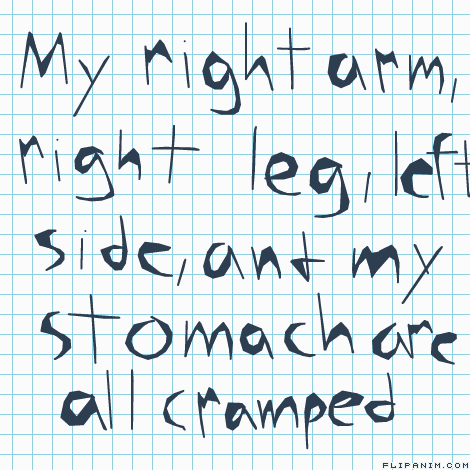 My right arm,
right leg, left
side, and my
stomach are
all cramped
FLIPANIM.COM